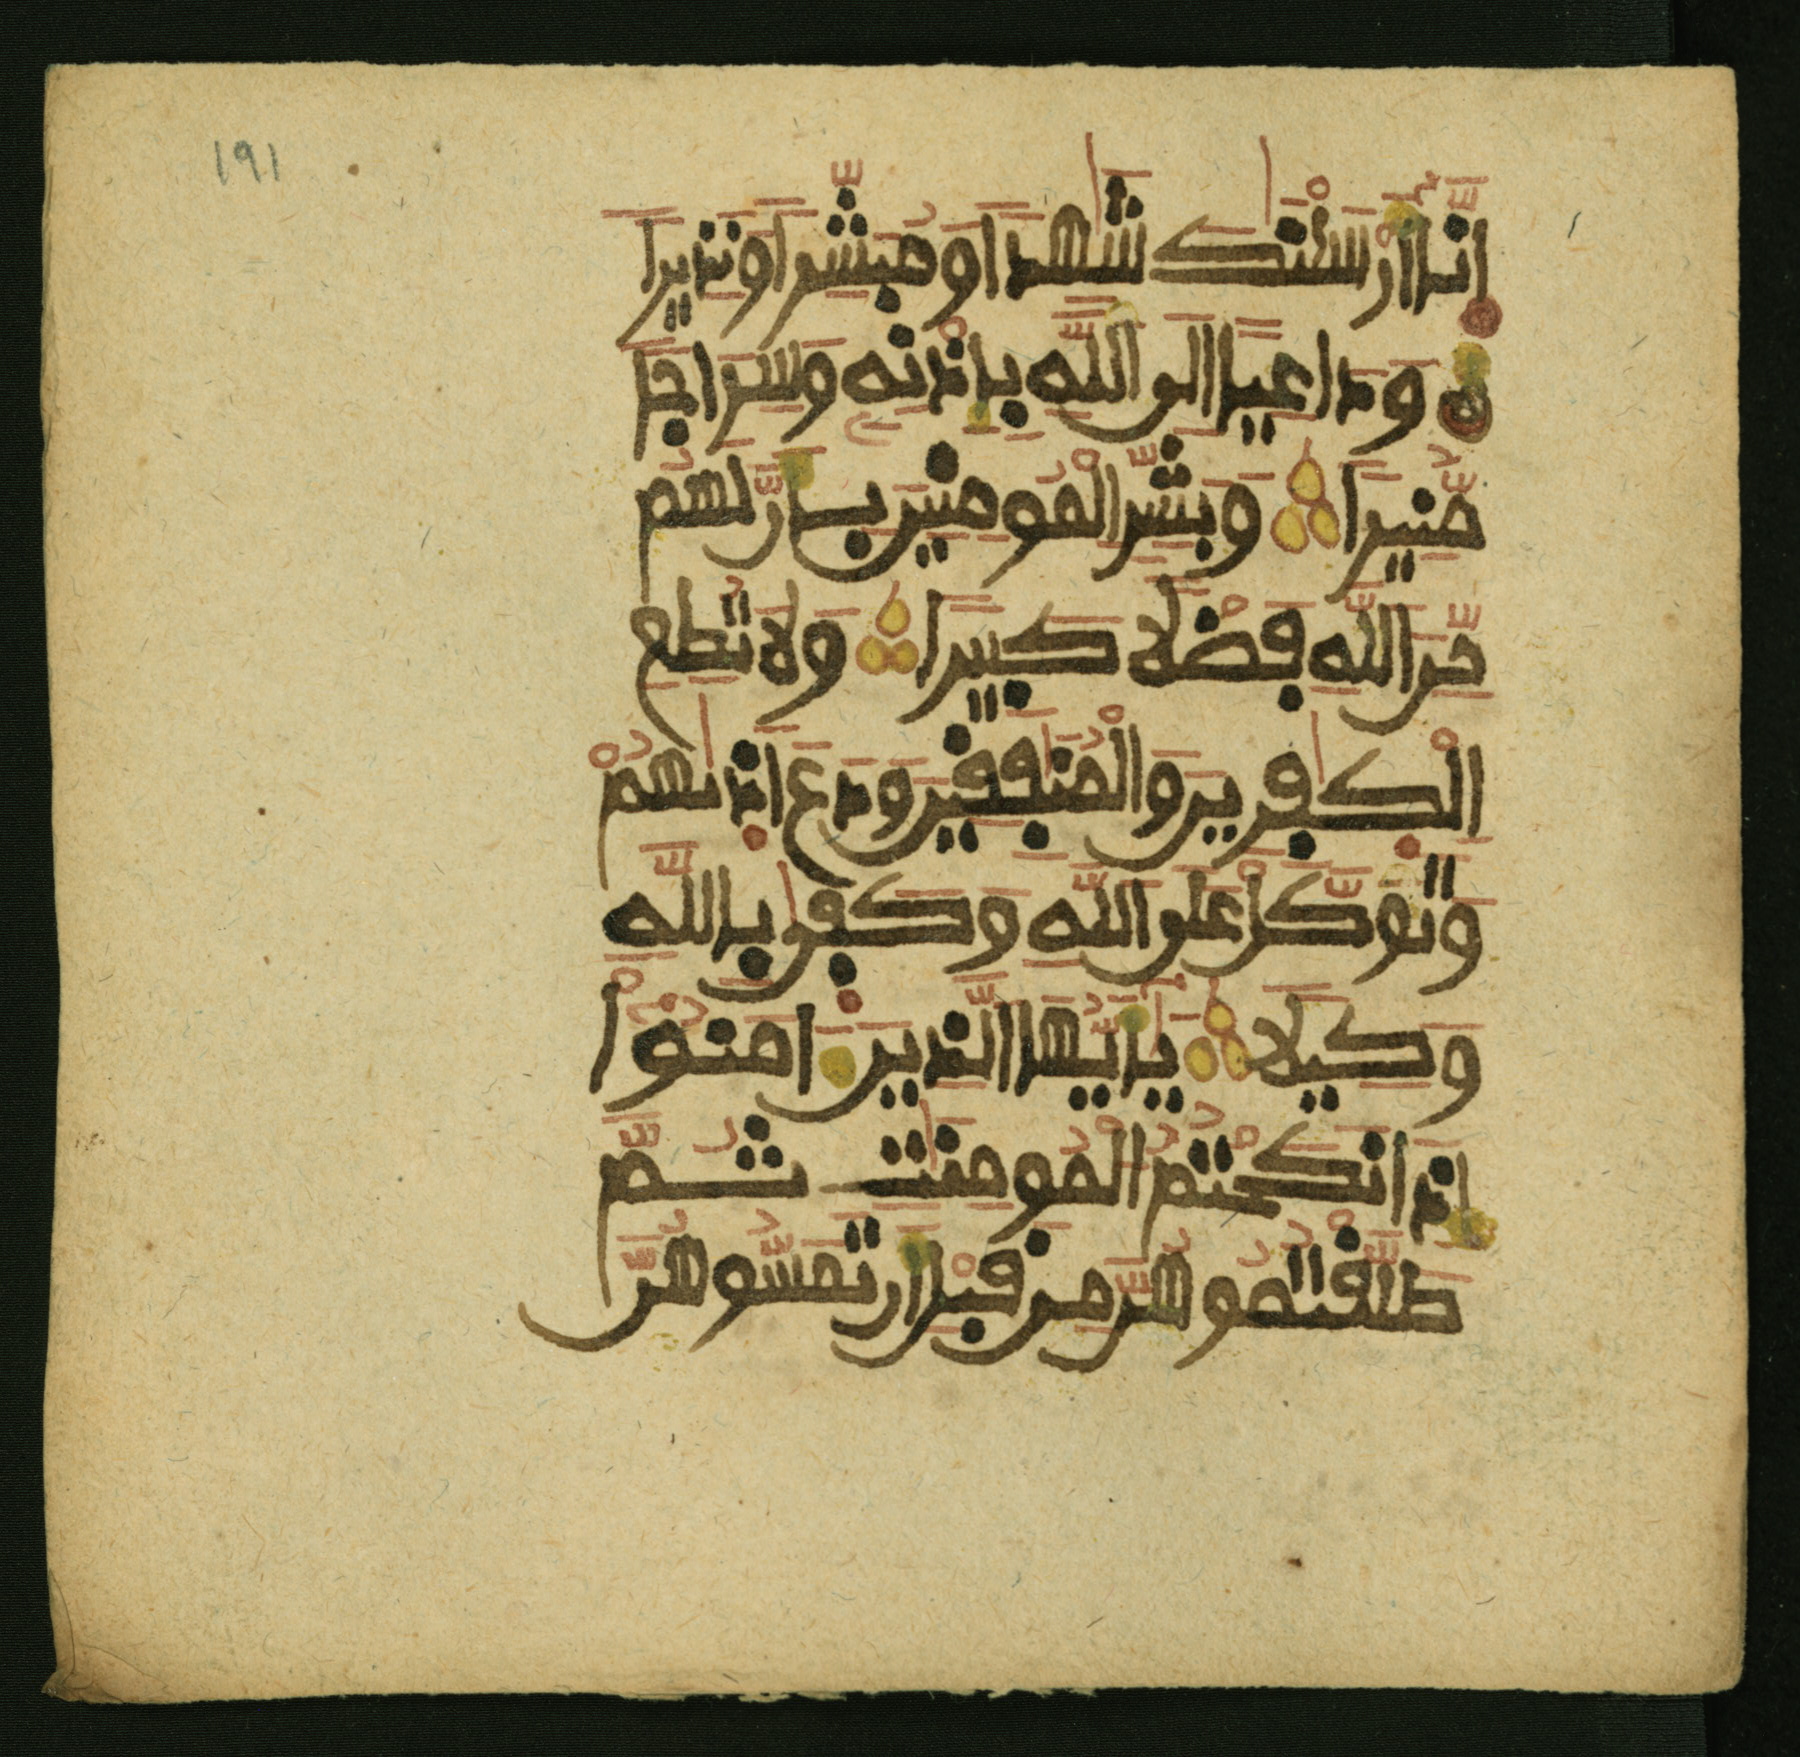 ١٩١
إِنَّا أَرْسَلْنَٰكَ شَٰهِدًا وَمُبَشِّرًا وَنَذِيرًا
وَدَاعِيًا إِلَى اللَّهِ بِإِذْنِهِ وَسِرَاجًا
مُّنِيرًا وَبَشِّرِ الْمُومِنِينَ بِأَنَّ لَهُم
مِّنَ اللَّهِ فَضْلًا كَبِيرًا وَلَا تُطِعِ
الْكَٰفِرِينَ وَالْمُنَٰفِقِينَ وَدَعْ أَذَىٰهُمْ
وَتَوَكَّلْ عَلَى اللَّهِ وَكَفَىٰ بِاللَّهِ
وَكِيلًا يَٰأَيُّهَا الَّذِينَ ءَامَنُوٓاْ
إِذَا نَكَحْتُمُ الْمُومِنَٰتِ ثُمَّ
طَلَّقْتُمُوهُنَّ مِن قَبْلِ أَن تَمَسُّوهُنَّ